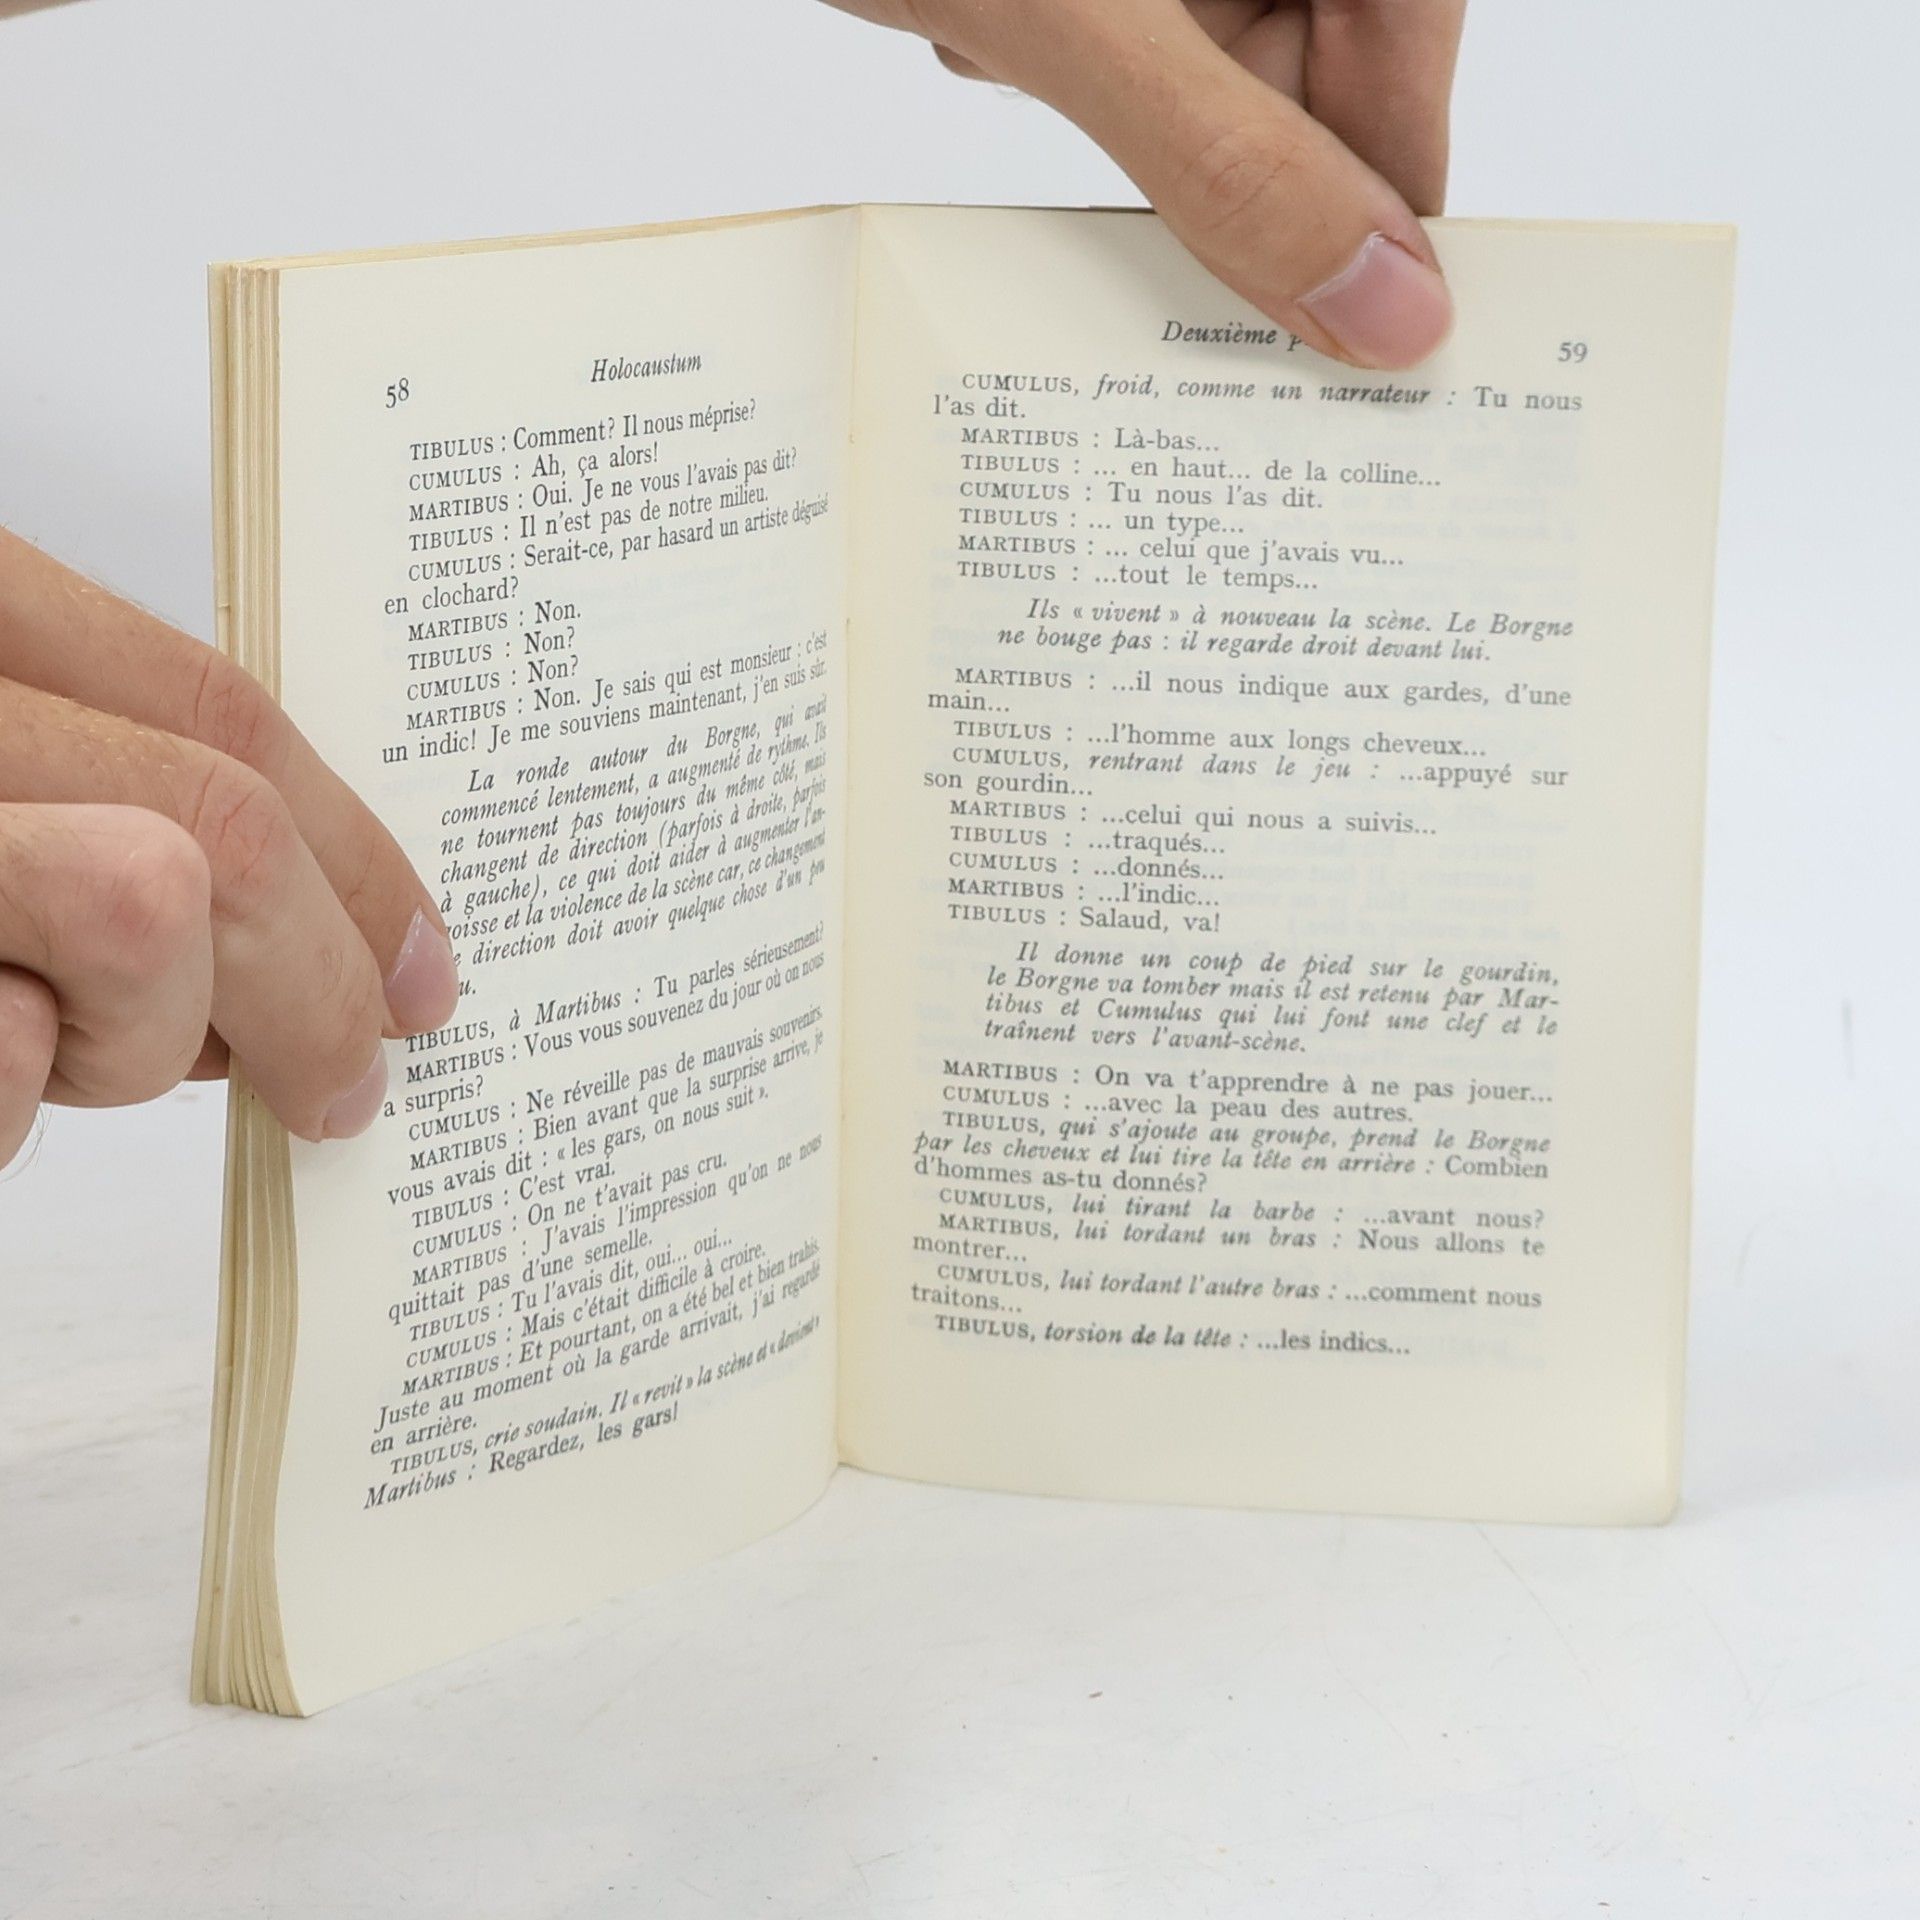 58
Holocaustum
TIBULUS : Comment? Il nous méprise?
CUMULUS : Ah, ça alors!
MARTIBUS : Oui. Je ne vous l'avais pas dit?
TIBULUS : Il n'est pas de notre milieu.
CUMULUS : Serait-ce, par hasard un artiste déguisé
en clochard?
MARTIBUS : Non.
TIBULUS : Non?
CUMULUS : Non?
MARTIBUS : Non. Je sais qui est monsieur : c'est
un indic! Je me souviens maintenant, j'en suis sûr.
La ronde autour du Borgne, qui avait
commencé lentement, a augmenté de rythme. Ils
ne tournent pas toujours du même côté, mais
changent de direction (parfois à droite, parfois
à gauche), ce qui doit aider à augmenter l'an-
goisse et la violence de la scène car, ce changement
direction doit avoir quelque chose d'un peu
TIBULUS, à Martibus : Tu parles sérieusement?
MARTIBUS : Vous vous souvenez du jour où on nous
a surpris?
CUMULUS : Ne réveille pas de mauvais souvenirs.
MARTIBUS : Bien avant que la surprise arrive, je
vous avais dit : « les gars, on nous suit ».
TIBULUS : C'est vrai.
CUMULUS : On ne t'avait pas cru.
MARTIBUS : J'avais l'impression qu'on ne nous
quittait pas d'une semelle.
TIBULUS : Tu l'avais dit, oui... oui...
CUMULUS : Mais c'était difficile à croire.
MARTIBUS : Et pourtant, on a été bel et bien trahis.
Juste au moment où la garde arrivait, j'ai regardé
en arrière.
TIBULUS, crie soudain. Il « revit » la scène et « devient »
Martibus : Regardez, les gars!
Deuxième
59
CUMULUS, froid, comme un narrateur : Tu nous
l'as dit.
MARTIBUS : Là-bas...
TIBULUS : ... en haut... de la colline...
CUMULUS : Tu nous l'as dit.
TIBULUS : ... un type...
MARTIBUS : ... celui que j'avais vu...
TIBULUS : ...tout le temps...
Ils « vivent » à nouveau la scène. Le Borgne
ne bouge pas : il regarde droit devant lui.
MARTIBUS : ...il nous indique aux gardes, d'une
main...
TIBULUS : ...l'homme aux longs cheveux...
CUMULUS, rentrant dans le jeu : ...appuyé sur
son gourdin...
MARTIBUS : ...celui qui nous a suivis...
TIBULUS : ...traqués...
CUMULUS : ...donnés...
MARTIBUS : ...l'indic...
TIBULUS : Salaud, va!
Il donne un coup de pied sur le gourdin,
le Borgne va tomber mais il est retenu par Mar-
tibus et Cumulus qui lui font une clef et le
traînent vers l'avant-scène.
MARTIBUS : On va t'apprendre à ne pas jouer...
CUMULUS : ...avec la peau des autres.
TIBULUS, qui s'ajoute au groupe, prend le Borgne
par les cheveux et lui tire la tête en arrière : Combien
d'hommes as-tu donnés?
CUMULUS, lui tirant la barbe : ...avant nous?
MARTIBUS, lui tordant un bras : Nous allons te
montrer...
CUMULUS, lui tordant l'autre bras : ...comment nous
traitons...
TIBULUS, torsion de la tête : ...les indics...